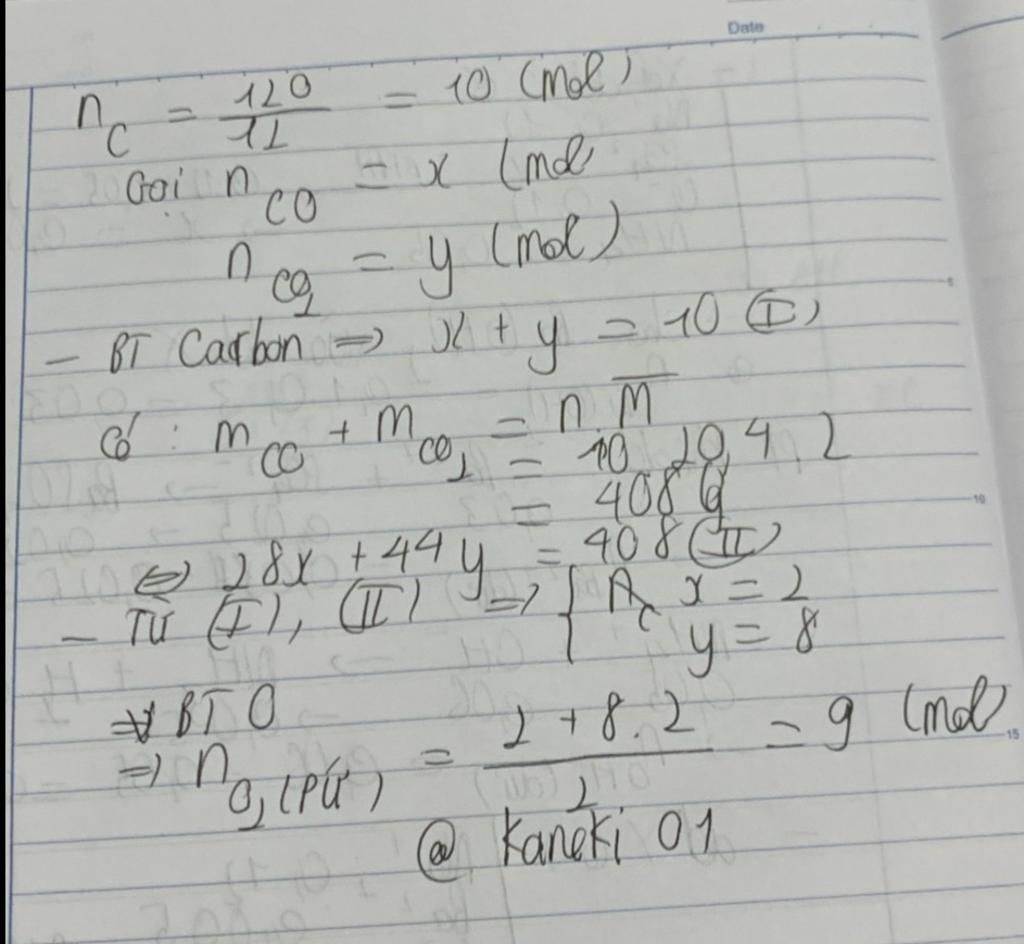 Date
n_C = 120/12 = 10 (mol)
Gọi n_CO = x (mol
n_CO2 = y (mol)
- BT Carbon => x + y = 10 (I)
Có : m_CO + m_CO2 = n.M̅
= 10.20,4.2
= 408 g
<=> 28x + 44y = 408 (II)
- Từ (I), (II) => { x = 2
y = 8
=> BT O
=> n_O2 (PƯ) = (2 + 8.2)/2 = 9 (mol)
@ Kaneki 01
5
10
15